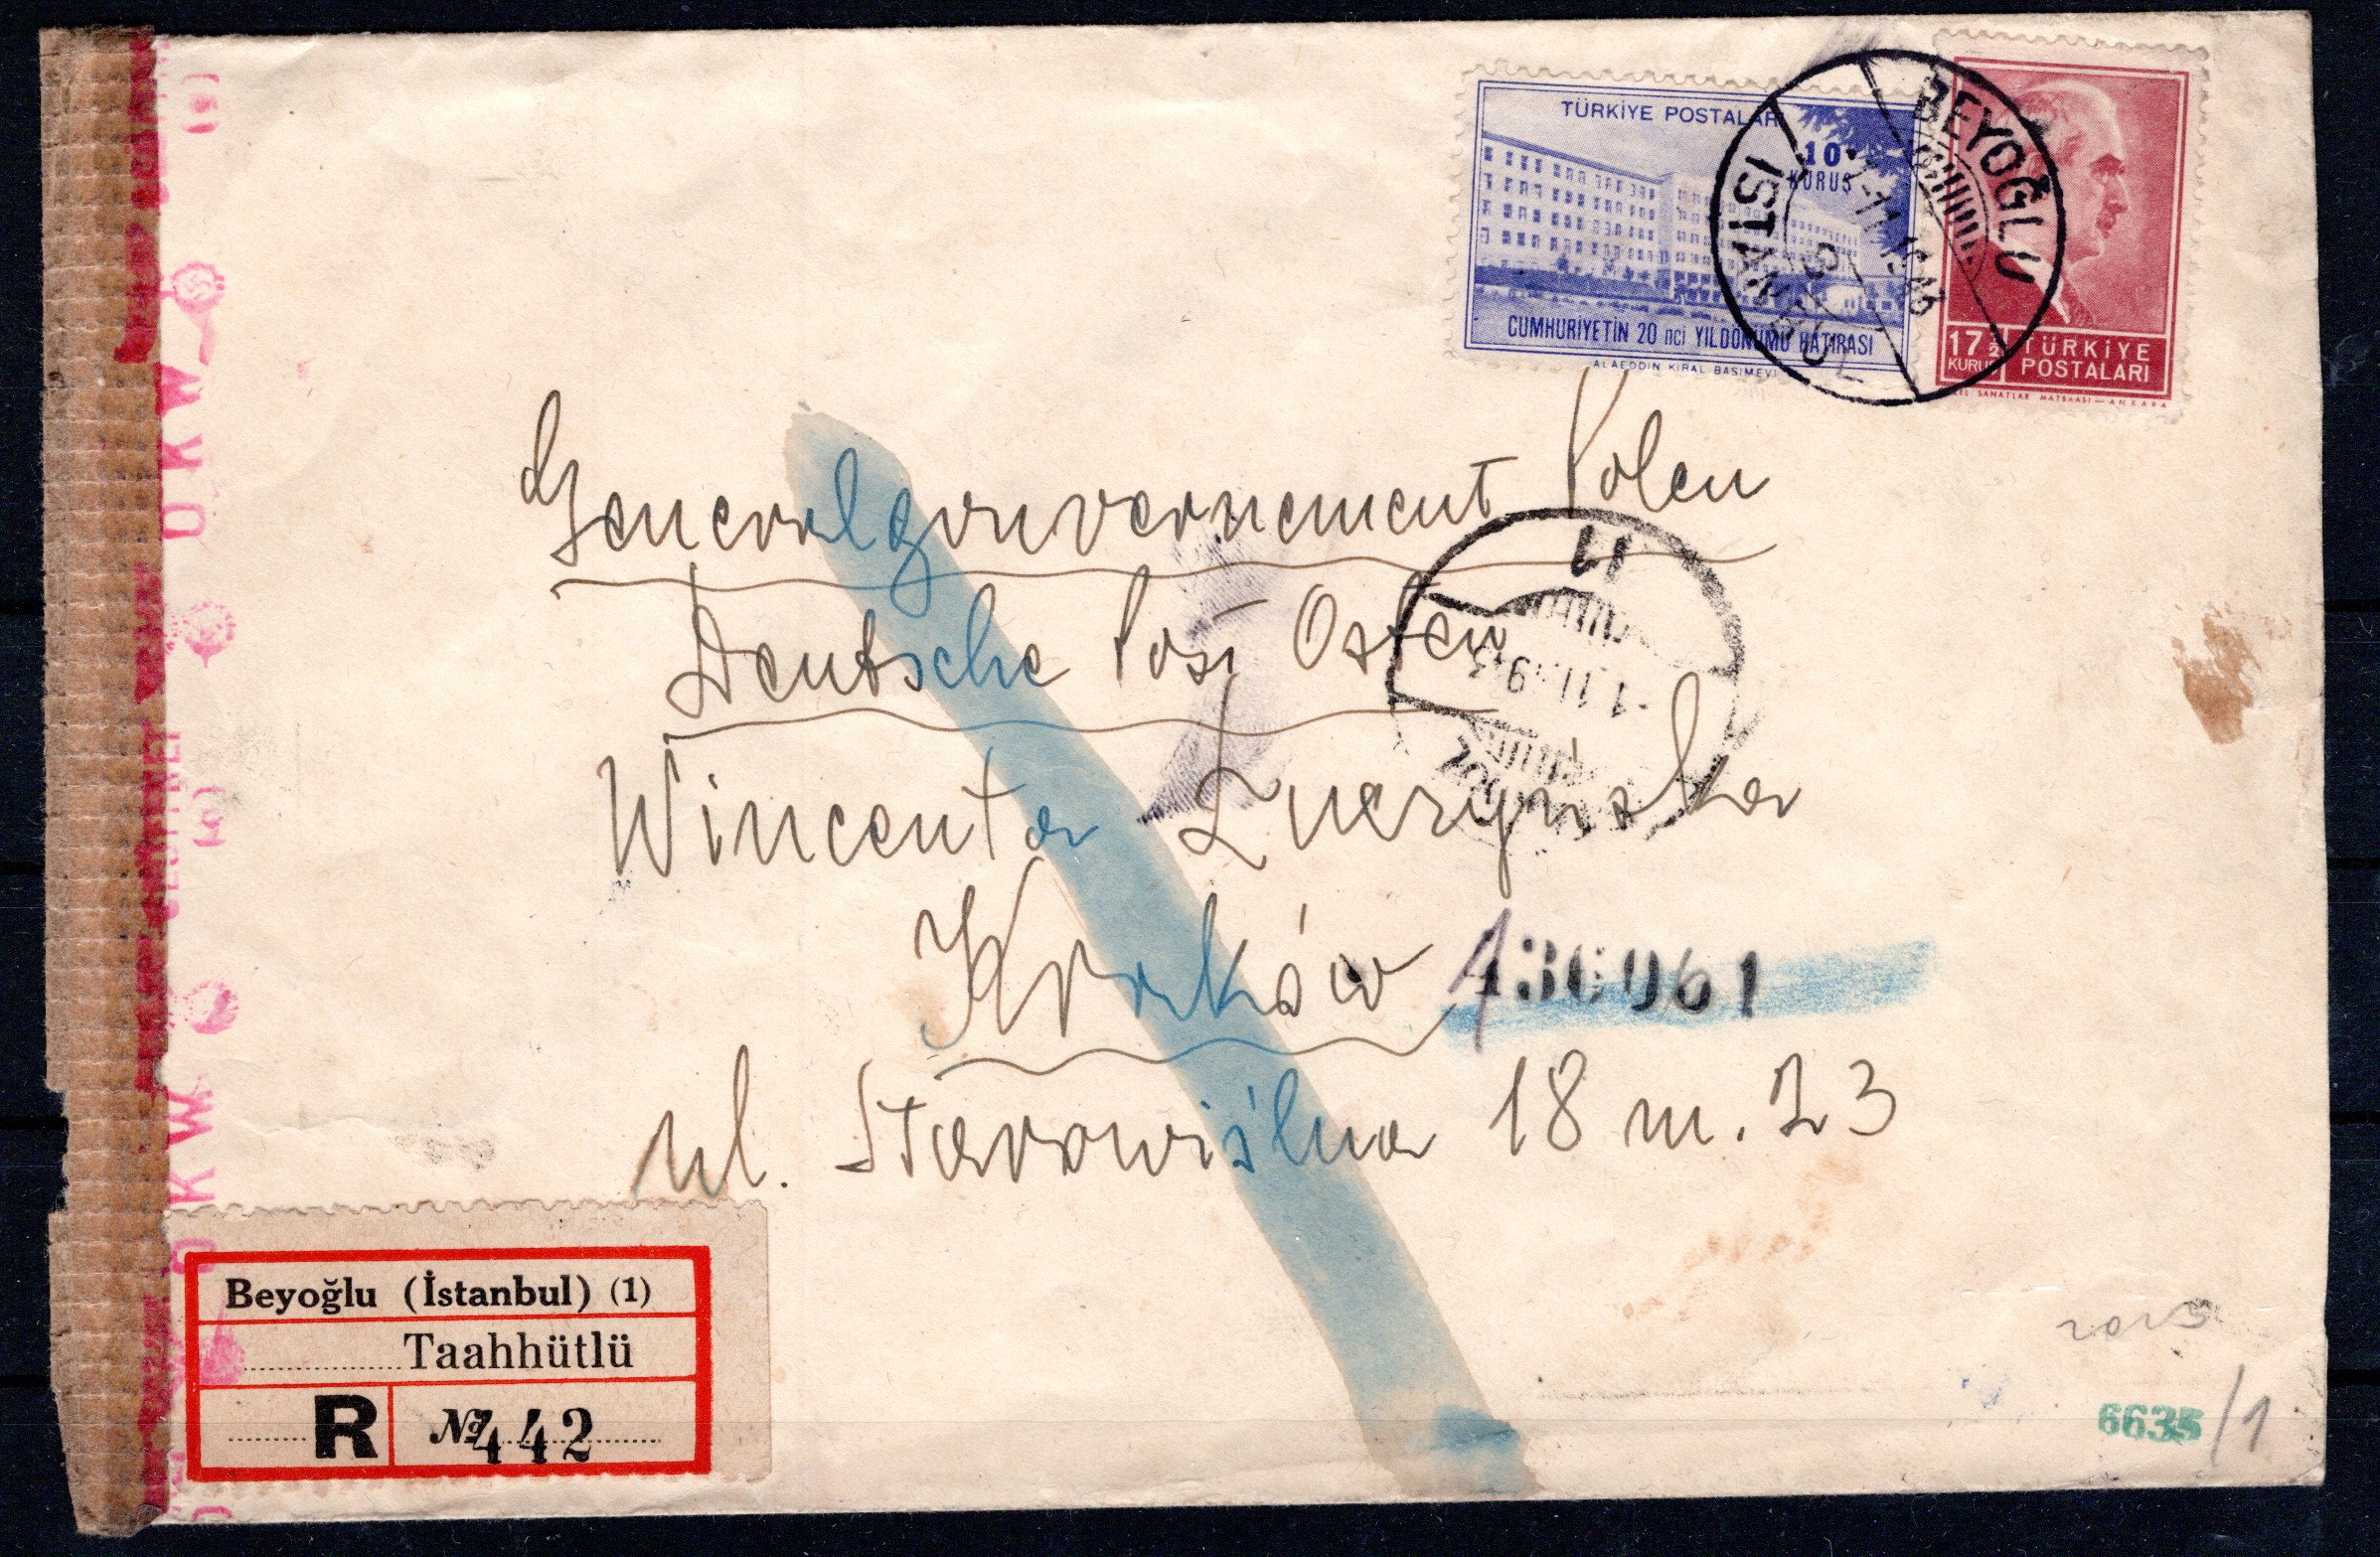 TÜRKİYE POSTALARI
10
KURUŞ
CUMHURİYETİN 20 nci YILDÖNÜMÜ HATIRASI
ALAEDDİN KIRAL BASIMEVİ
BEYOĞLU
İSTANBUL
17½
KURUŞ
TÜRKİYE
POSTALARI
SANATLAR MATBAASI — ANKARA
Generalgouvernement Polen
11
Deutsche Post Osten
1.11.1943
Wincenta
Kraków
436061
ul. Starowiślna 18 m. 23
OKW
OKW
OKW
Beyoğlu (İstanbul) (1)
Taahhütlü
R № 442
6635/1